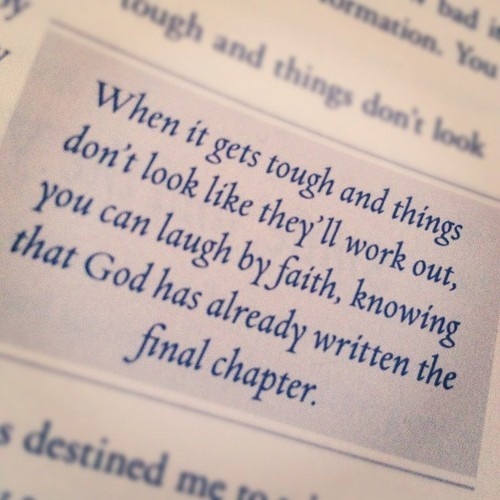 bad
formation. You
tough and things don't look
When it gets tough and things
don't look like they'll work out,
you can laugh by faith, knowing
that God has already written the
final chapter.
destined me to